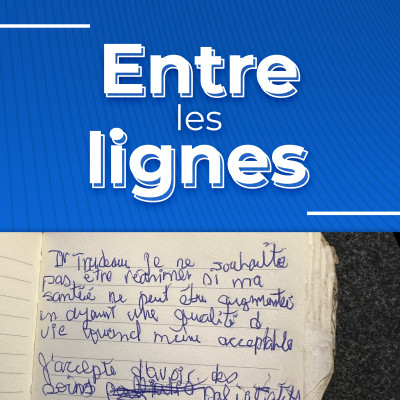 Entre
les
lignes
Dr Trudeau je ne souhaite
pas être réanimer si ma
santé ne peut être augmenter
en ayant une qualité d
vie quand même acceptable
J'accepte d'avoir des
soins palliatifs